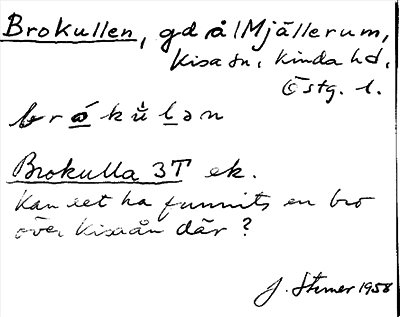 Brokullen, gd å Mjällerum,
Kisa sn, Kinda hd,
Östg. l.
brókùlən
Brokulla 3T ek.
Kan det ha funnits en bro
över Kisaån där?
J. Stumer 1958